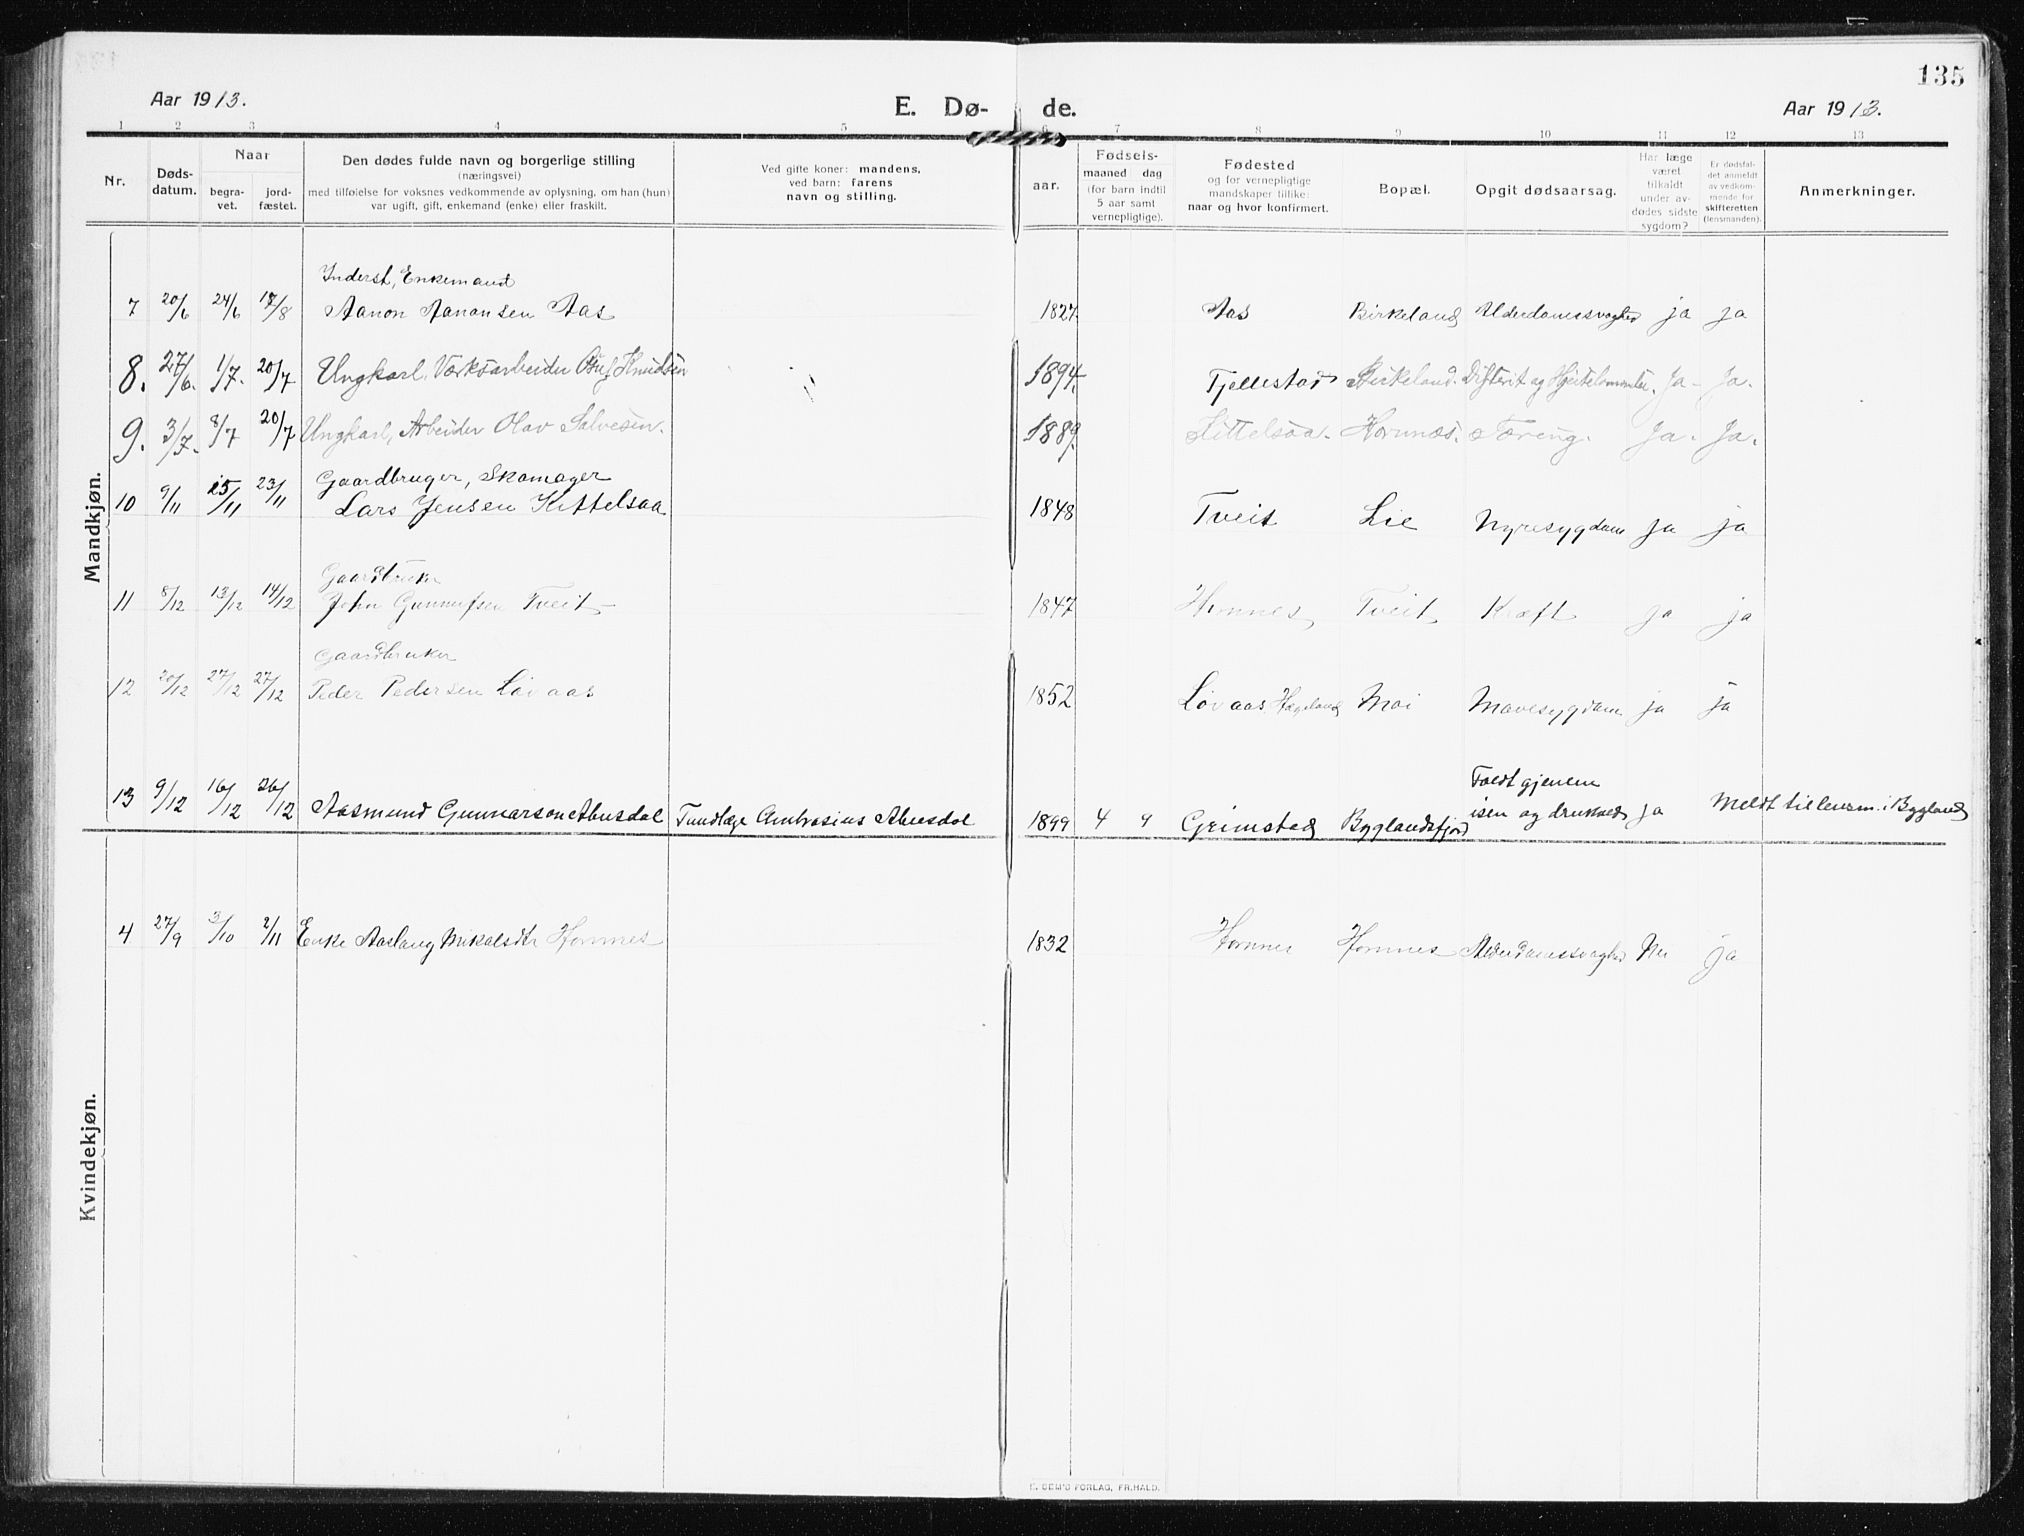 135
Aar 1913. E. Dø- de. Aar 1913.
1 2 3 4 5 6 7 8 9 10 11 12 13
Nr.
Døds-
datum.
Naar
begra-
vet.
jord-
fæstet.
Den dødes fulde navn og borgerlige stilling
(næringsvei)
med tilføielse for voksnes vedkommende av oplysning, om han (hun)
var ugift, gift, enkemand (enke) eller fraskilt.
Ved gifte koner: mandens,
ved barn: farens
navn og stilling.
aar.
Fødsels-
maaned dag
(for barn indtil
5 aar samt
vernepligtige).
Fødested
og for vernepligtige
mandskaper tillike:
naar og hvor konfirmert.
Bopæl.
Opgit dødsaarsag.
Har læge
været
tilkaldt
under av-
dødes sidste
sygdom?
Er dødsfal-
det anmeldt
av vedkom-
mende for
skifteretten
(lensmanden).
Anmerkninger.
Mandkjøn.
Inderst, Enkemand
7 20/6 24/6 17/8 Aanon Aanonsen Aas 1827. Aas Birkeland Alderdomssvaghed ja ja
8. 27/6. 1/7. 20/7 Ungkarl, Værksarbeider Knudsen 1894. Tjellestad Birkeland. Difterit og Ja - Ja.
9. 3/7. 8/7 20/7 Ungkarl, Arbeider Olav Salvesen. 1889. Kittelsaa. Hornnes. Tæring. Ja. Ja.
Gaardbruger, Skomager
10 9/11 15/11 23/11 Lars Jensen Kittelsaa 1848 Tveit Lie Nyresygdom ja ja
Gaardbruker
11 8/12 13/12 14/12 John Gunnufsen Tveit 1847 Hornnes Tveit Kræft ja ja
Gaardbruker
12 20/12 27/12 27/12 Peder Pedersen Løvaas 1852 Løvaas Hægeland Moi Mavesygdom ja ja
Faldt gjenem
13 9/12 16/12 26/12 Aasmund Gunnarson Abusdal Tandlæge Ambrosius Abusdal 1899 4 4 Grimstad Byglandsfjord isen og druknede ja Meldt til lensm. i Bygland
Kvindekjøn.
4 27/9 3/10 2/11 Enke Aaslaug Mikalsdtr Hornnes 1832 Hornnes Hornnes Alderdomssvaghed Nei ja
E. SEM'S FORLAG, FR.HALD.